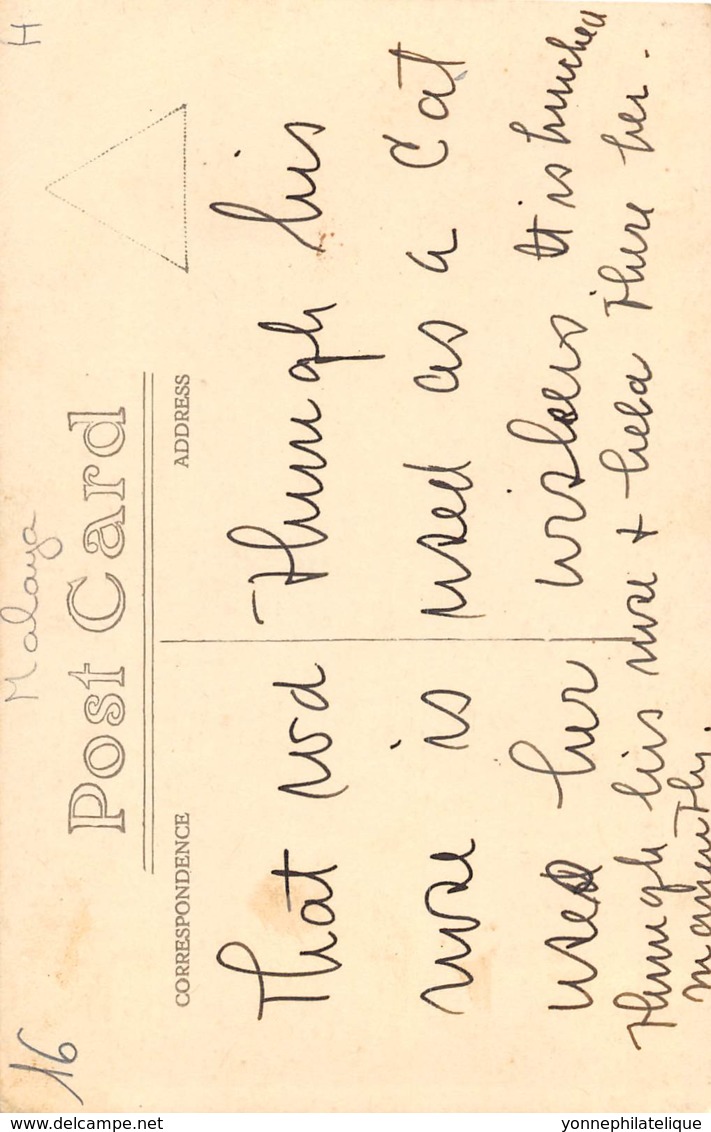 Malaya
H
16
Post Card
CORRESPONDENCE
ADDRESS
That rod through his
nose is used as a Cat
uses her wiskers it is hunched
through his nose + held there her.
delcampe.net
yonnephilatelique